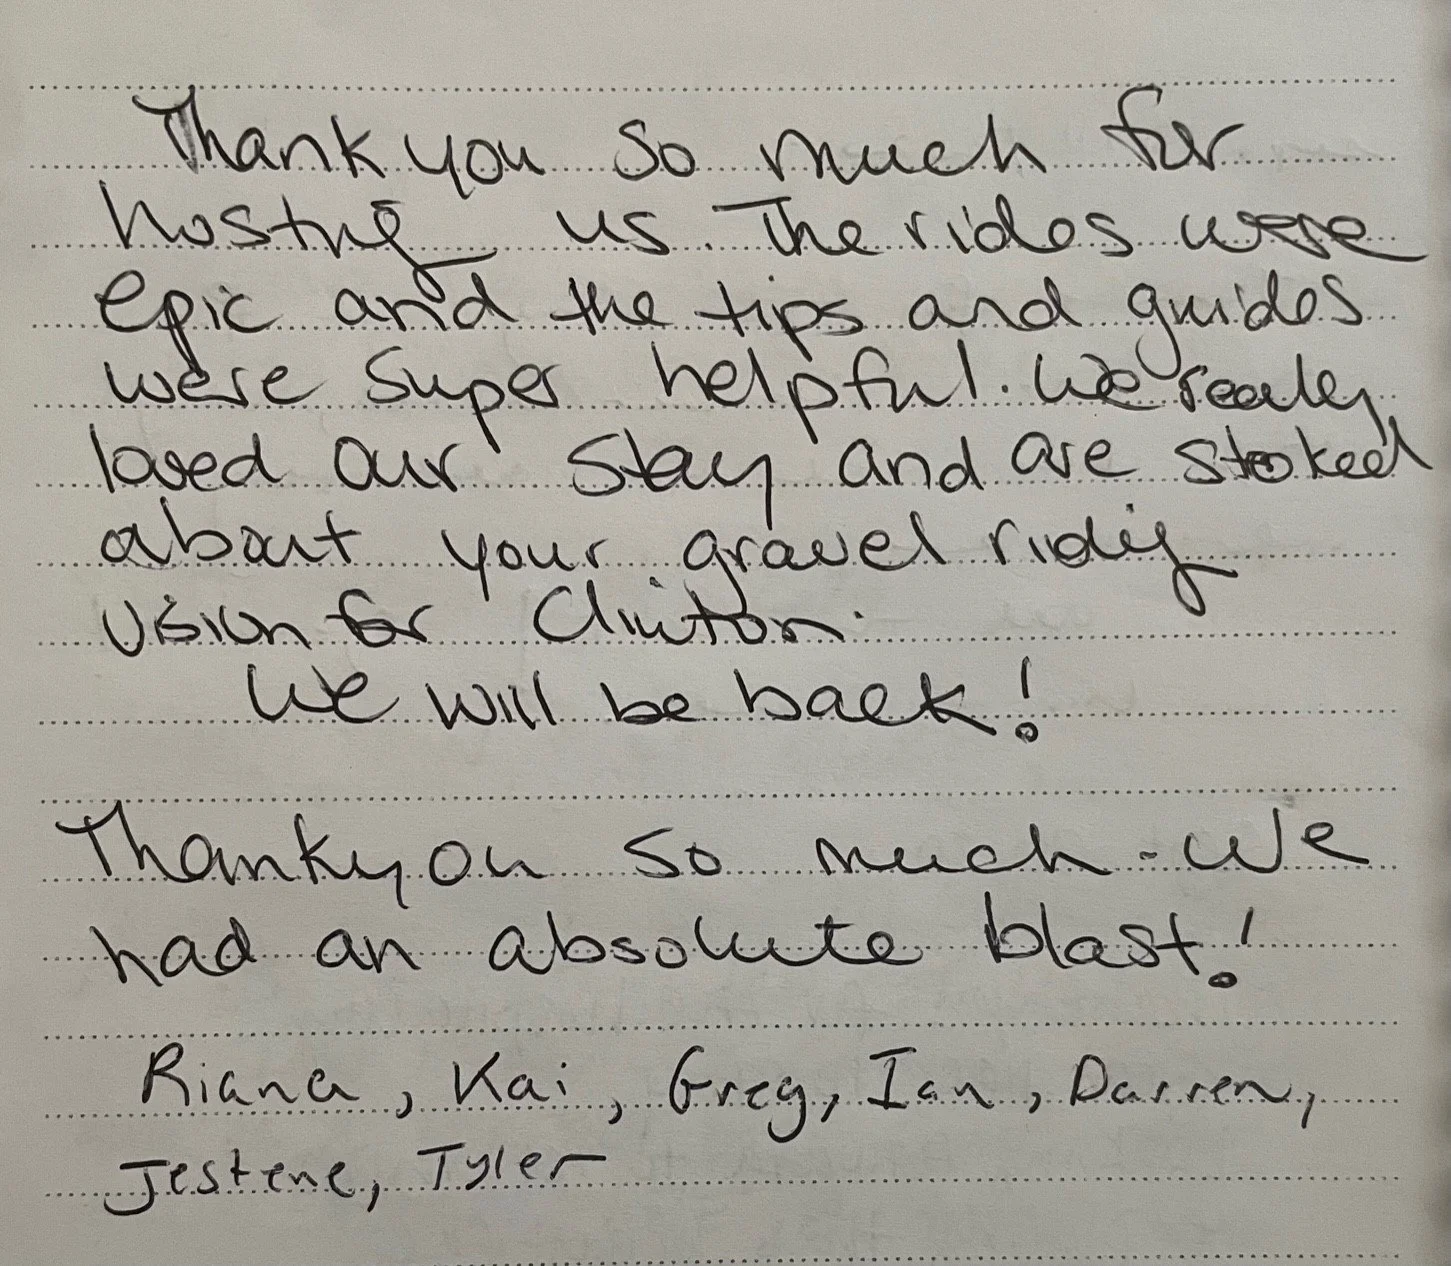 Thank you so much for
hosting us. The rides were
epic and the tips and guides
were super helpful. We really
loved our stay and are stoked
about your gravel riding
vision for Clinton.
We will be back!
Thankyou so much - We
had an absolute blast!
Riana, Kai, Greg, Ian, Darren,
Jestene, Tyler